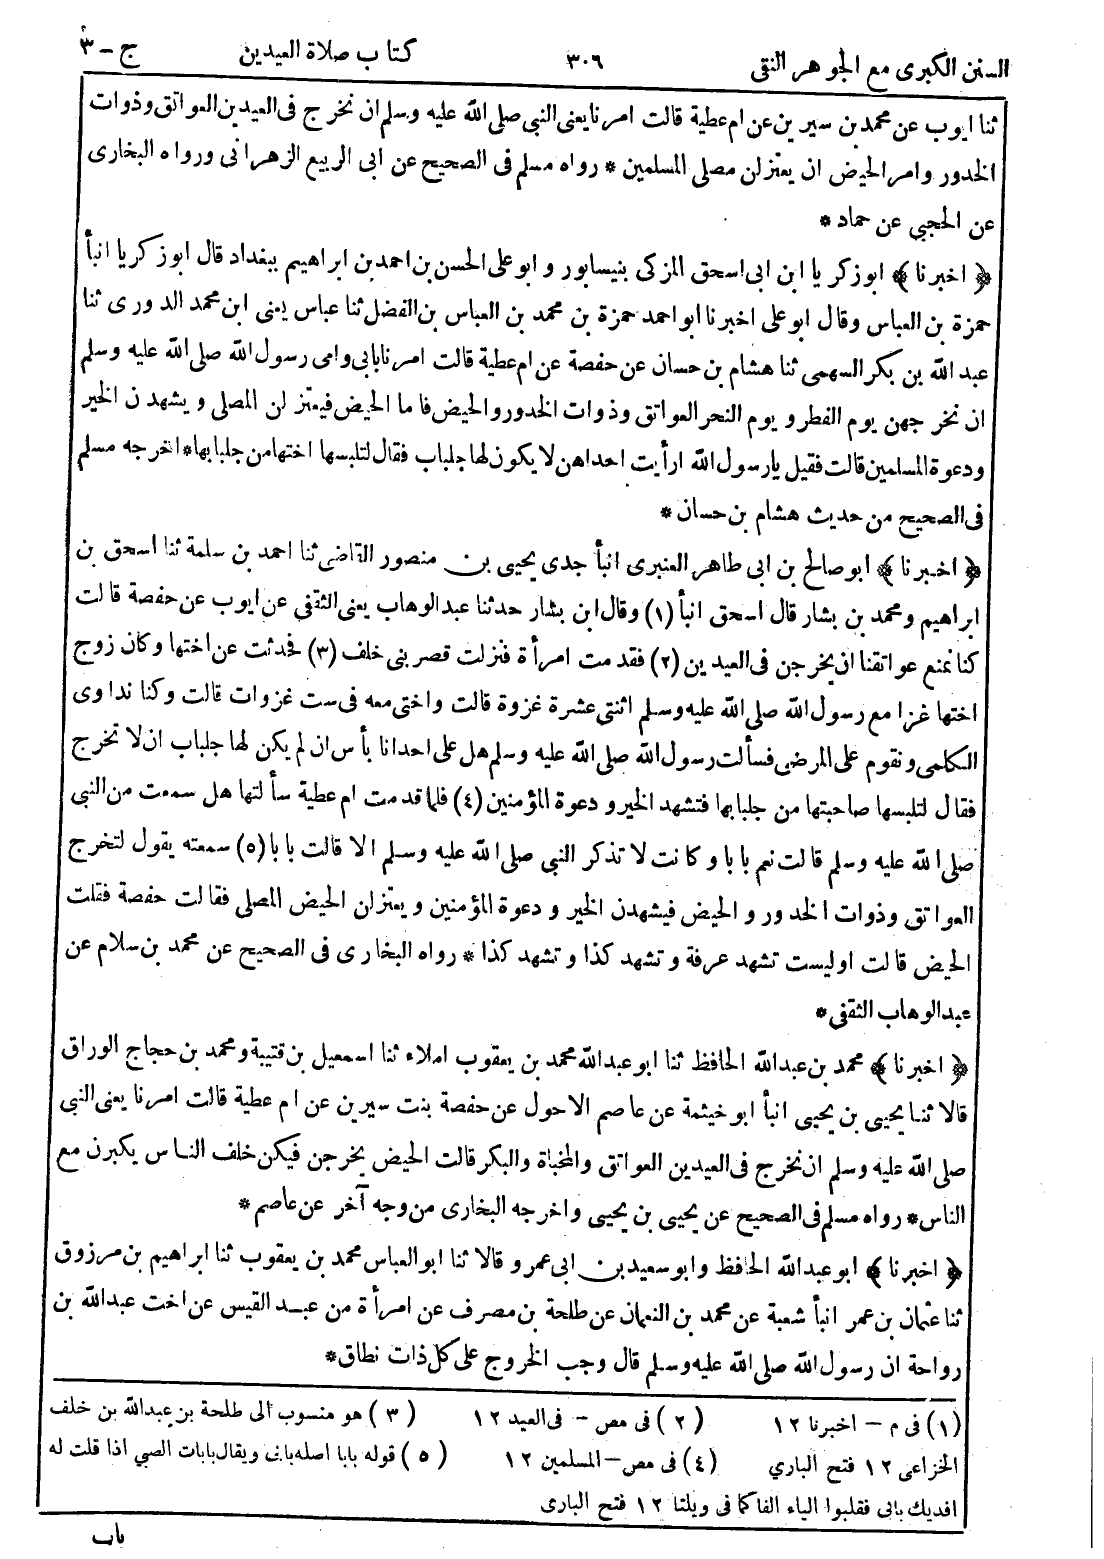 السنن الكبرى مع الجوهر النقى ٣٠٦ كتاب صلاة العيدين ج - ٣
ثنا ايوب عن محمد بن سيرين عن ام عطية قالت امرنا يعنى النبى صلى الله عليه وسلم ان نخرج فى العيدين العواتق وذوات
الخدور وامر الحيض ان يعتزلن مصلى المسلمين * رواه مسلم فى الصحيح عن ابى الربيع الزهرانى ورواه البخارى
عن الحجبى عن حماد *
﴿ اخبرنا ﴾ ابو زكريا ابن ابى اسحق المزكى بنيسابور و ابو على الحسن بن احمد بن ابراهيم ببغداد قال ابو زكريا انبأ
حمزة بن العباس وقال ابو على اخبرنا ابو احمد حمزة بن محمد بن العباس بن الفضل ثنا عباس يعنى ابن محمد الدورى ثنا
عبد الله بن بكر السهمى ثنا هشام بن حسان عن حفصة عن ام عطية قالت امرنا بابى وامى رسول الله صلى الله عليه وسلم
ان نخرجهن يوم الفطر و يوم النحر العواتق وذوات الخدور والحيض فاما الحيض فيعتزلن المصلى و يشهدن الخير
ودعوة المسلمين قالت فقيل يا رسول الله ارأيت احداهن لا يكون لها جلباب فقال لتلبسها اختها من جلبابها * اخرجه مسلم
فى الصحيح من حديث هشام بن حسان *
﴿ اخبرنا ﴾ ابو صالح بن ابى طاهر العنبرى انبأ جدى يحيى بن منصور القاضى ثنا احمد بن سلمة ثنا اسحق بن
ابراهيم و محمد بن بشار قال اسحق انبأ (١) وقال ابن بشار حدثنا عبد الوهاب يعنى الثقفى عن ايوب عن حفصة قالت
كنا نمنع عواتقنا ان يخرجن فى العيدين (٢) فقدمت امرأة فنزلت قصر بنى خلف (٣) فحدثت عن اختها وكان زوج
اختها غزا مع رسول الله صلى الله عليه وسلم اثنتى عشرة غزوة قالت واختى معه فى ست غزوات قالت وكنا نداوى
الكلمى ونقوم على المرضى فسألت رسول الله صلى الله عليه وسلم هل على احدانا بأس ان لم يكن لها جلباب ان لا تخرج
فقال لتلبسها صاحبتها من جلبابها فتشهد الخير و دعوة المؤمنين (٤) فلما قدمت ام عطية سألتها هل سمعت من النبى
صلى الله عليه وسلم قالت نعم بابا وكانت لا تذكر النبى صلى الله عليه وسلم الا قالت بابا (٥) سمعته يقول لتخرج
العواتق وذوات الخدور و الحيض فيشهدن الخير و دعوة المؤمنين و يعتزلن الحيض المصلى فقالت حفصة فقلت
الحيض قالت اوليست تشهد عرفة و تشهد كذا و تشهد كذا * رواه البخارى فى الصحيح عن محمد بن سلام عن
عبد الوهاب الثقفى *
﴿ اخبرنا ﴾ محمد بن عبد الله الحافظ ثنا ابو عبد الله محمد بن يعقوب املاء ثنا اسمعيل بن قتيبة ومحمد بن حجاج الوراق
قالا ثنا يحيى بن يحيى انبأ ابو خيثمة عن عاصم الاحول عن حفصة بنت سيرين عن ام عطية قالت امرنا يعنى النبى
صلى الله عليه وسلم ان نخرج فى العيدين العواتق والمخباة والبكر قالت الحيض يخرجن فيكن خلف الناس يكبرن مع
الناس * رواه مسلم فى الصحيح عن يحيى بن يحيى واخرجه البخارى من وجه آخر عن عاصم *
﴿ اخبرنا ﴾ ابو عبد الله الحافظ وابو سعيد بن ابى عمرو قالا ثنا ابو العباس محمد بن يعقوب ثنا ابراهيم بن مرزوق
ثنا عثمان بن عمر انبأ شعبة عن محمد بن النعمان عن طلحة بن مصرف عن امرأة من عبد القيس عن اخت عبد الله بن
رواحة ان رسول الله صلى الله عليه وسلم قال وجب الخروج على كل ذات نطاق *
(١) فى م - اخبرنا ١٢ (٢) فى مص - فى العيد ١٢ (٣) هو منسوب الى طلحة بن عبد الله بن خلف
الخزاعى ١٢ فتح الباري (٤) فى مص - المسلمين ١٢ (٥) قوله بابا اصله بابى ويقال بابات الصبي اذا قلت له
افديك بابى فقلبوا الياء الفا كما فى ويلتا ١٢ فتح البارى
باب